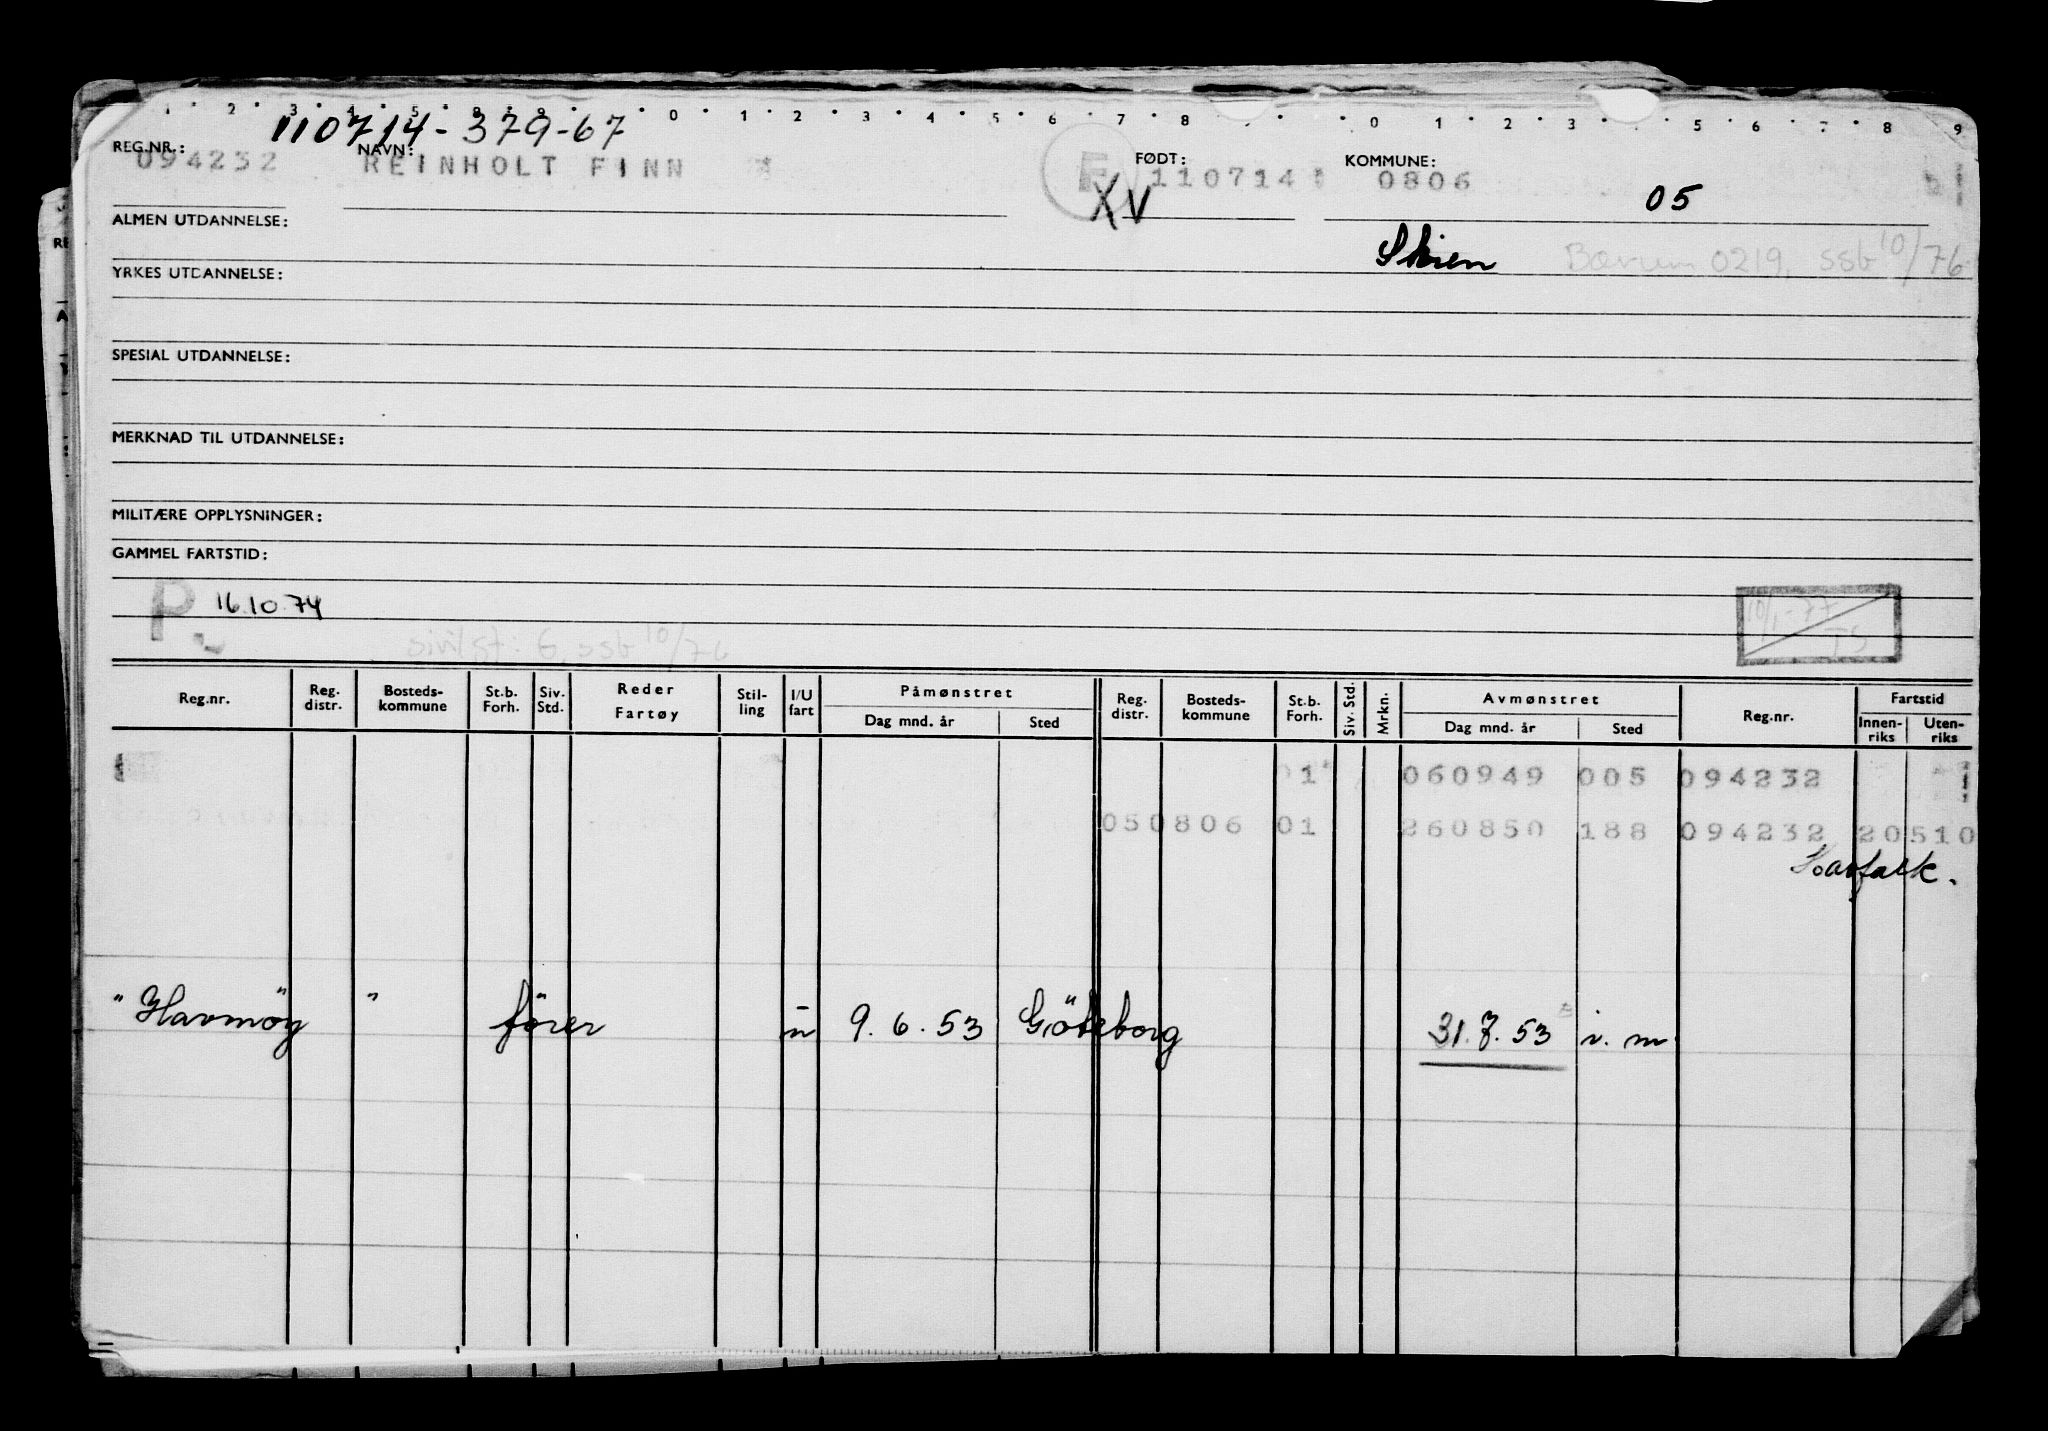 1 2 3 4 5 6 7 8 0 1 2 3 4 5 6 7 8 0 1 2 3 5 6 7 8 9
110714-379-67
REG.NR.: NAVN: FØDT: KOMMUNE:
094232 REINHOLT FINN F 110714 0806
XV 05
ALMEN UTDANNELSE:
Skien Bærum 0219, ssb 10/76
YRKES UTDANNELSE:
SPESIAL UTDANNELSE:
MERKNAD TIL UTDANNELSE:
MILITÆRE OPPLYSNINGER:
GAMMEL FARTSTID:
P. 16.10.74 10/1-77
sivilst: 6, ssb 10/76 JS
Reg.nr. Reg. distr. Bosteds-kommune St.b. Forh. Siv. Std. Reder Fartøy Stil-ling I/U fart Påmønstret Dag mnd. år Sted Reg. distr. Bosteds-kommune St.b. Forh. Siv. Std. Mrkn. Avmønstret Dag mnd. år Sted Reg.nr. Fartstid Innen-riks Uten-riks
01 060949 005 094232
050806 01 260850 188 094232 20510
Havfalk.
"Havmøy" " fører u 9.6.53 Göteborg 31.7.53 i.m